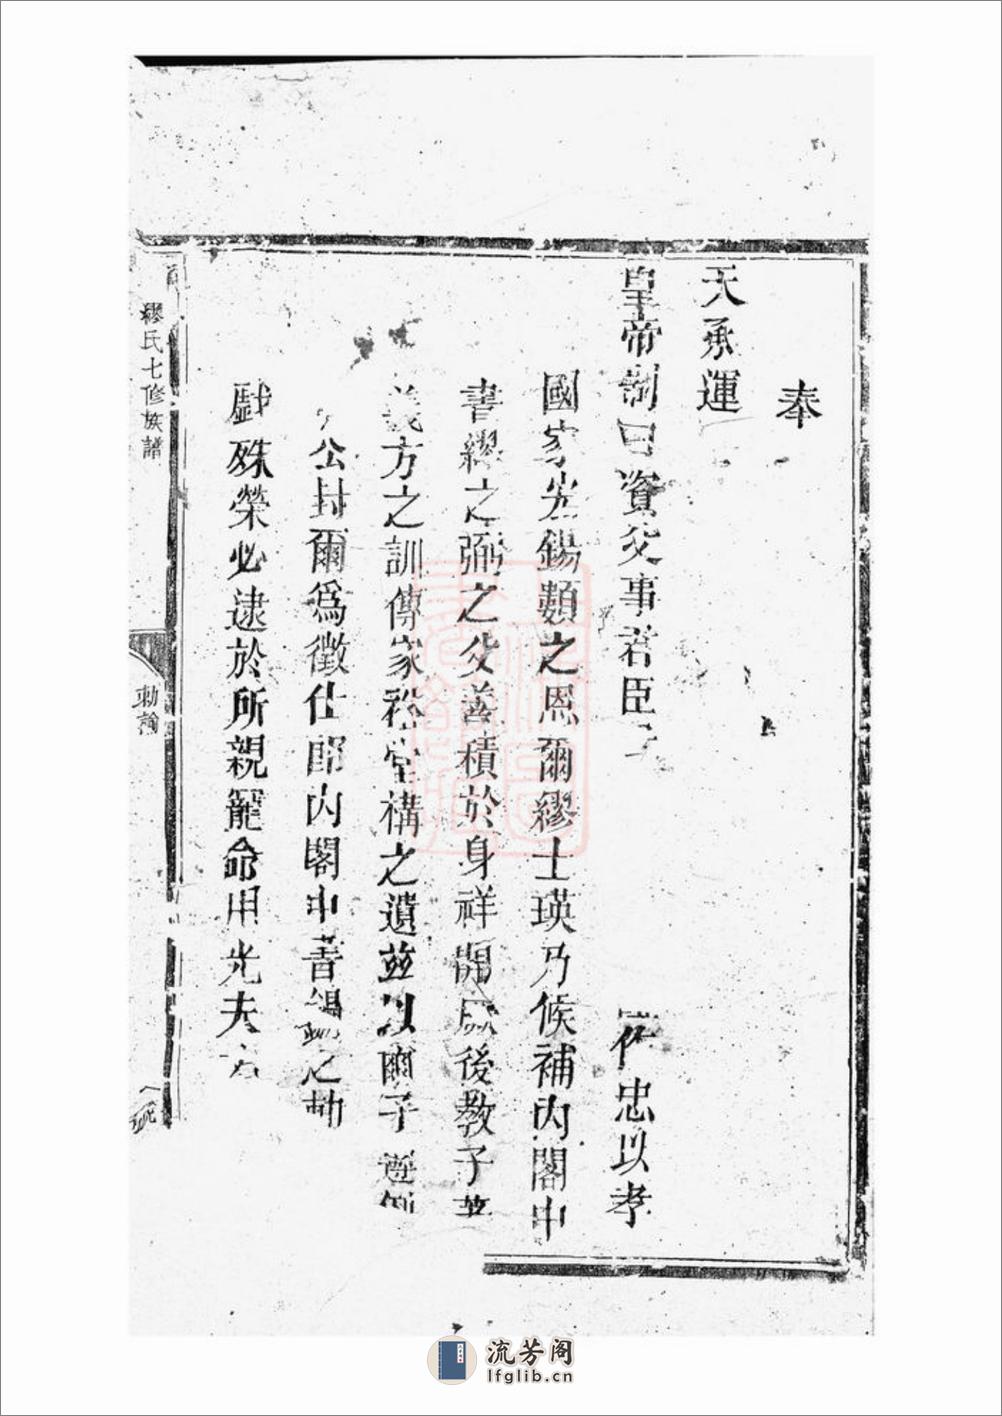 奉
天承運
皇帝制曰資父事君臣子 作忠以孝
國家光錫類之恩爾繆士瑛乃候補內閣中
書繆之弼之父善積於身祥開厥後教子著
義方之訓傳家裕堂構之遺茲以爾子遵例
公封爾為徵仕郎內閣中書錫之勅
戲殊榮必逮於所親寵命用光夫
繆氏七修族譜
勅諭
流芳阁
lfglib.cn